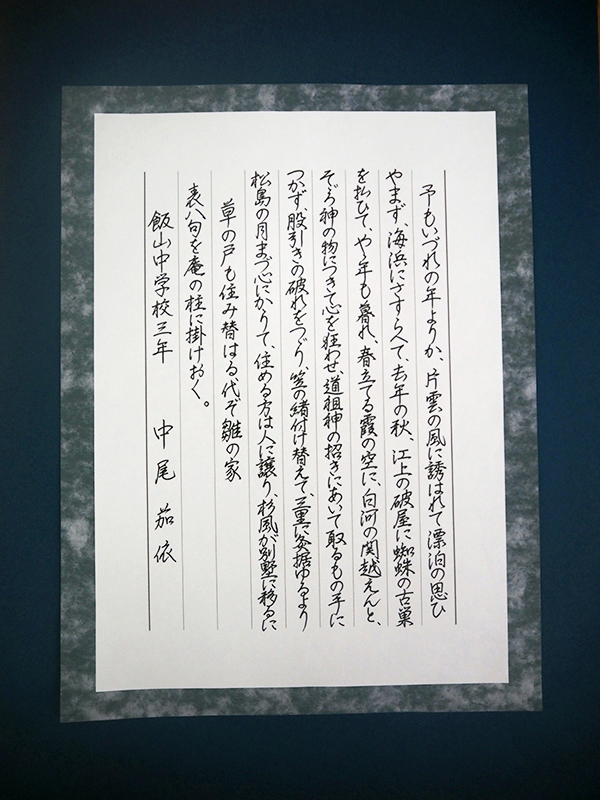 予もいづれの年よりか、片雲の風に誘はれて漂泊の思ひ
やまず、海浜にさすらへて、去年の秋、江上の破屋に蜘蛛の古巣
を払ひて、やゝ年も暮れ、春立てる霞の空に、白河の関越えんと、
そゞろ神の物につきて心を狂わせ、道祖神の招きにあいて取るもの手に
つかず、股引きの破れをつゞり、笠の緒付け替えて、三里に灸据ゆるより
松島の月まづ心にかゝりて、住める方は人に譲り、杉風が別墅に移るに
草の戸も住み替はる代ぞ雛の家
表八句を庵の柱に掛けおく。
飯山中学校三年 中尾茄依